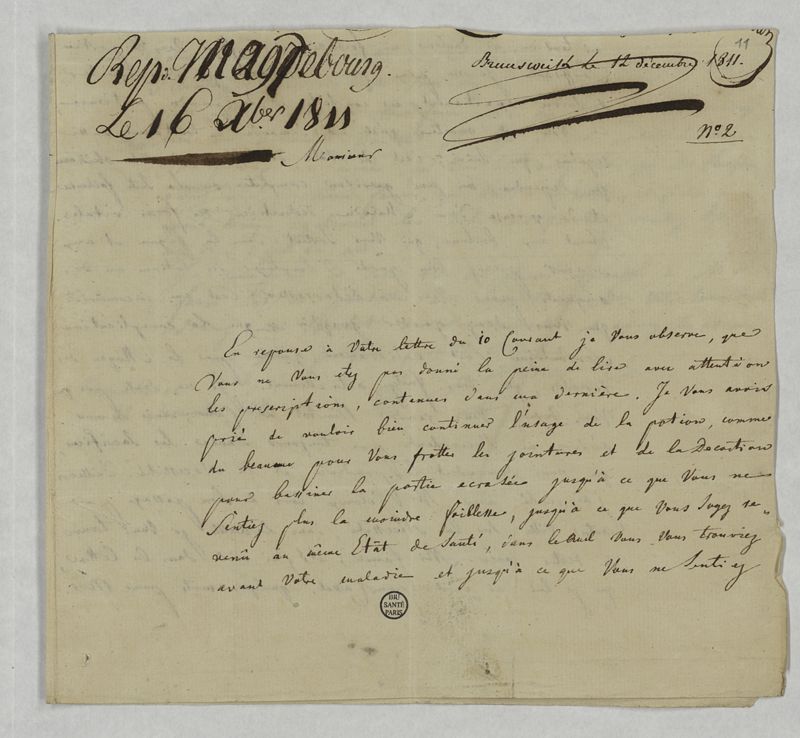 Rep. Magdebourg.
Le 16 Xber 1811
Brunsweick le 12 décembre 1811.
11
No. 2
Monsieur
En reponse à Vôtre lettre du 10 Courant je Vous observe, que
Vous ne Vous etez pas donné la peine de lire avec attention
les prescriptions, contenues dans ma dernière. Je Vous avois
prié de vouloir bien continuer l'usage de la potion, comme
du beaume pour Vous frotter les jointures et de la Decoction
pour bassiner la partie ecrasée jusqu'à ce que Vous ne
Sentiez plus la moindre foiblesse, jusqu'à ce que Vous Soyez re„
venû au même Etât de Santé, dans lequel Vous Vous trouviez
avant Vôtre maladie et jusqu'à ce que Vous ne Sentiez
BIU
SANTÉ
PARIS